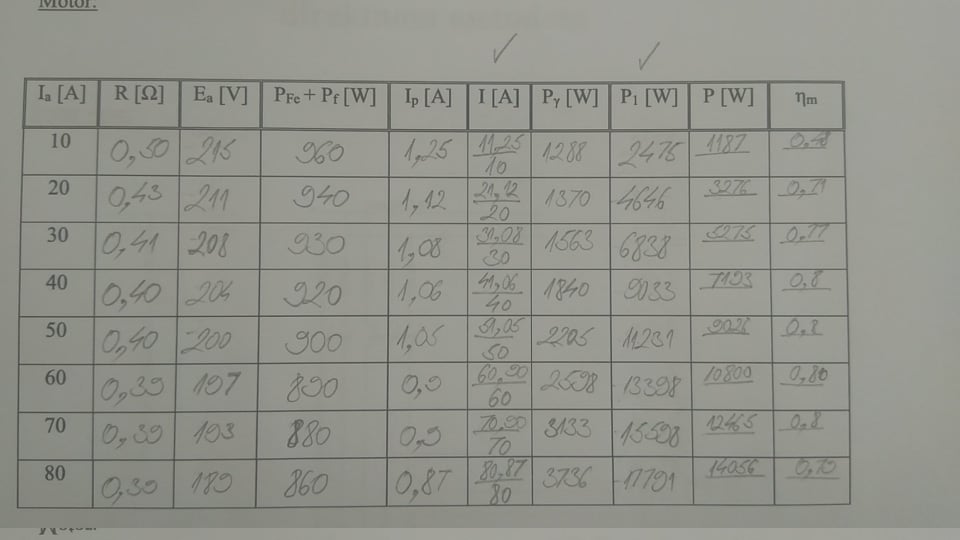 Motor:
Ia [A] R [Ω] Ea [V] PFe + Pf [W] Ip [A] I [A] Pγ [W] P1 [W] P [W] ηm
10 0,50 215 960 1,25 11,25/10 1288 2475 1187 0,48
20 0,43 211 940 1,12 21,12/20 1370 4646 3276 0,71
30 0,41 208 930 1,08 31,08/30 1563 6838 5275 0,77
40 0,40 204 920 1,06 41,06/40 1840 9033 7193 0,8
50 0,40 200 900 1,05 51,05/50 2205 11231 9026 0,8
60 0,39 197 890 0,9 60,90/60 2598 13398 10800 0,80
70 0,39 193 880 0,9 70,90/70 3133 15598 12465 0,8
80 0,39 189 860 0,87 80,87/80 3736 17791 14056 0,79